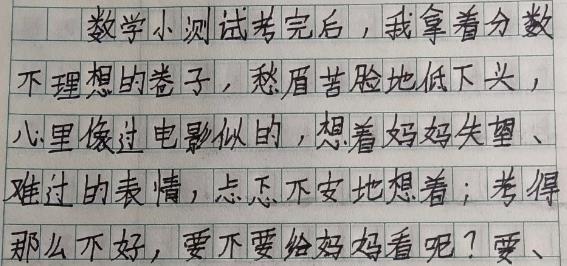 数学小测试考完后，我拿着分数
不理想的卷子，愁眉苦脸地低下头，
心里像过电影似的，想着妈妈失望、
难过的表情，忐忑不安地想着；考得
那么不好，要不要给妈妈看呢？要、